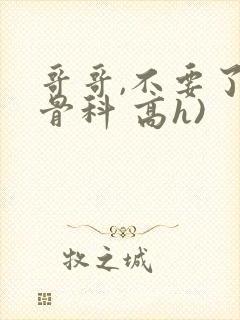 哥哥,不要了
骨科 高h)
牧之城